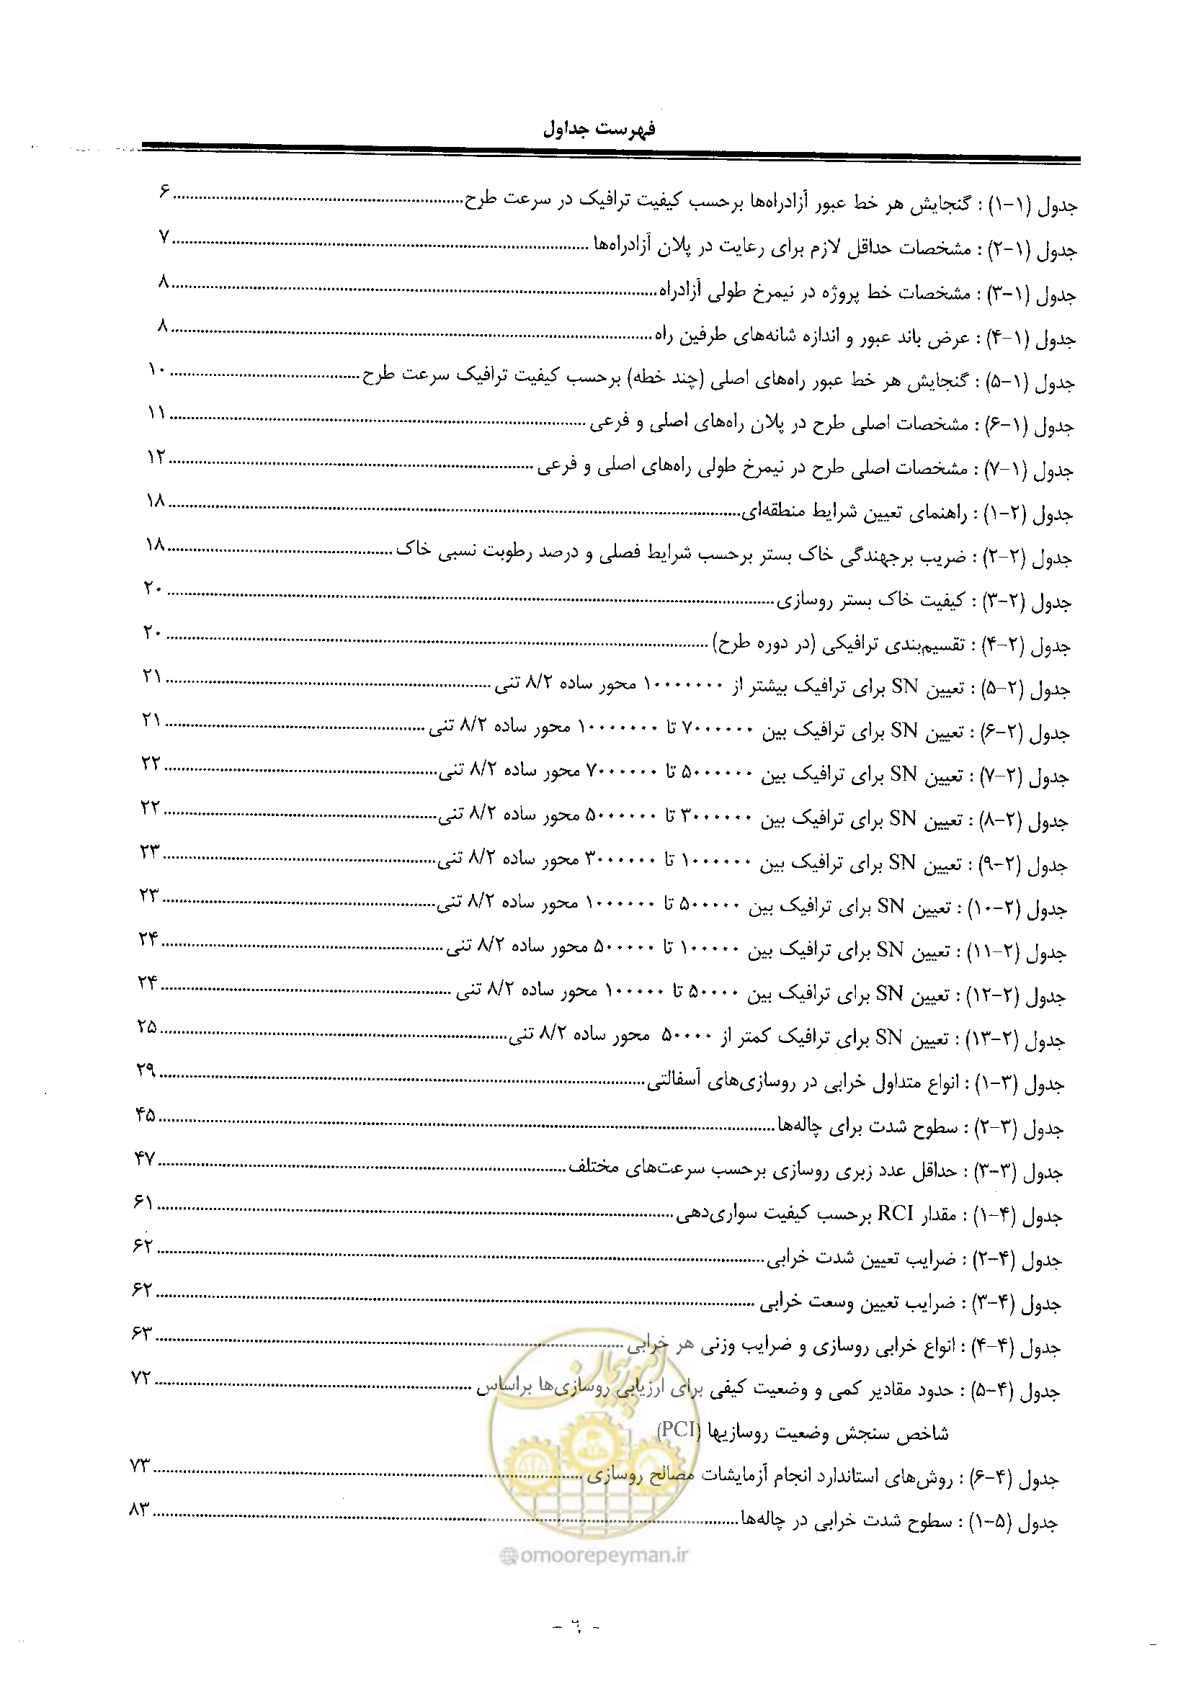 فهرست جداول
جدول (۱-۱) : گنجایش هر خط عبور آزادراه‌ها برحسب کیفیت ترافیک در سرعت طرح........۶
جدول (۱-۲) : مشخصات حداقل لازم برای رعایت در پلان آزادراه‌ها ........۷
جدول (۱-۳) : مشخصات خط پروژه در نیمرخ طولی آزادراه........۸
جدول (۱-۴) : عرض باند عبور و اندازه شانه‌های طرفین راه........۸
جدول (۱-۵) : گنجایش هر خط عبور راه‌های اصلی (چند خطه) برحسب کیفیت ترافیک سرعت طرح........۱۰
جدول (۱-۶) : مشخصات اصلی طرح در پلان راه‌های اصلی و فرعی ........۱۱
جدول (۱-۷) : مشخصات اصلی طرح در نیمرخ طولی راه‌های اصلی و فرعی ........۱۲
جدول (۲-۱) : راهنمای تعیین شرایط منطقه‌ای........۱۸
جدول (۲-۲) : ضریب برجهندگی خاک بستر برحسب شرایط فصلی و درصد رطوبت نسبی خاک........۱۸
جدول (۲-۳) : کیفیت خاک بستر روسازی........۲۰
جدول (۲-۴) : تقسیم‌بندی ترافیکی (در دوره طرح) ........۲۰
جدول (۲-۵) : تعیین SN برای ترافیک بیشتر از ۱۰۰۰۰۰۰۰ محور ساده ۸/۲ تنی ........۲۱
جدول (۲-۶) : تعیین SN برای ترافیک بین ۷۰۰۰۰۰۰ تا ۱۰۰۰۰۰۰۰ محور ساده ۸/۲ تنی ........۲۱
جدول (۲-۷) : تعیین SN برای ترافیک بین ۵۰۰۰۰۰۰ تا ۷۰۰۰۰۰۰ محور ساده ۸/۲ تنی........۲۲
جدول (۲-۸) : تعیین SN برای ترافیک بین ۳۰۰۰۰۰۰ تا ۵۰۰۰۰۰۰ محور ساده ۸/۲ تنی........۲۲
جدول (۲-۹) : تعیین SN برای ترافیک بین ۱۰۰۰۰۰۰ تا ۳۰۰۰۰۰۰ محور ساده ۸/۲ تنی........۲۳
جدول (۲-۱۰) : تعیین SN برای ترافیک بین ۵۰۰۰۰۰ تا ۱۰۰۰۰۰۰ محور ساده ۸/۲ تنی........۲۳
جدول (۲-۱۱) : تعیین SN برای ترافیک بین ۱۰۰۰۰۰ تا ۵۰۰۰۰۰ محور ساده ۸/۲ تنی........۲۴
جدول (۲-۱۲) : تعیین SN برای ترافیک بین ۵۰۰۰۰ تا ۱۰۰۰۰۰ محور ساده ۸/۲ تنی ........۲۴
جدول (۲-۱۳) : تعیین SN برای ترافیک کمتر از ۵۰۰۰۰ محور ساده ۸/۲ تنی........۲۵
جدول (۳-۱) : انواع متداول خرابی در روسازی‌های آسفالتی........۲۹
جدول (۳-۲) : سطوح شدت برای چاله‌ها........۴۵
جدول (۳-۳) : حداقل عدد زبری روسازی برحسب سرعت‌های مختلف........۴۷
جدول (۴-۱) : مقدار RCI برحسب کیفیت سواری‌دهی........۶۱
جدول (۴-۲) : ضرایب تعیین شدت خرابی........۶۲
جدول (۴-۳) : ضرایب تعیین وسعت خرابی ........۶۲
جدول (۴-۴) : انواع خرابی روسازی و ضرایب وزنی هر خرابی........۶۳
جدول (۴-۵) : حدود مقادیر کمی و وضعیت کیفی برای ارزیابی روسازی‌ها براساس ........۷۲
شاخص سنجش وضعیت روسازیها (PCI)
جدول (۴-۶) : روش‌های استاندارد انجام آزمایشات مصالح روسازی ........۷۳
جدول (۵-۱) : سطوح شدت خرابی در چاله‌ها........۸۳
امور پیمان
@omoorepeyman.ir